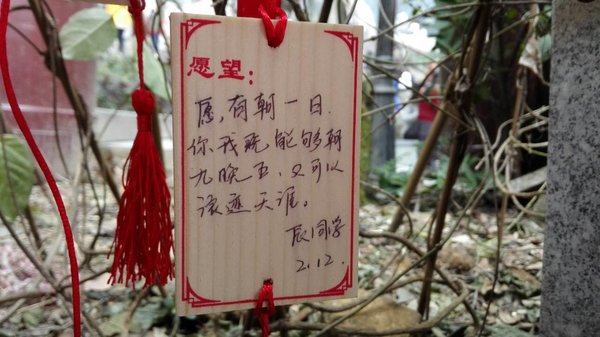 愿望：
愿，有朝一日.
你、我既能够朝
九晚五，又可以
浪迹天涯。
辰同学
2.12.